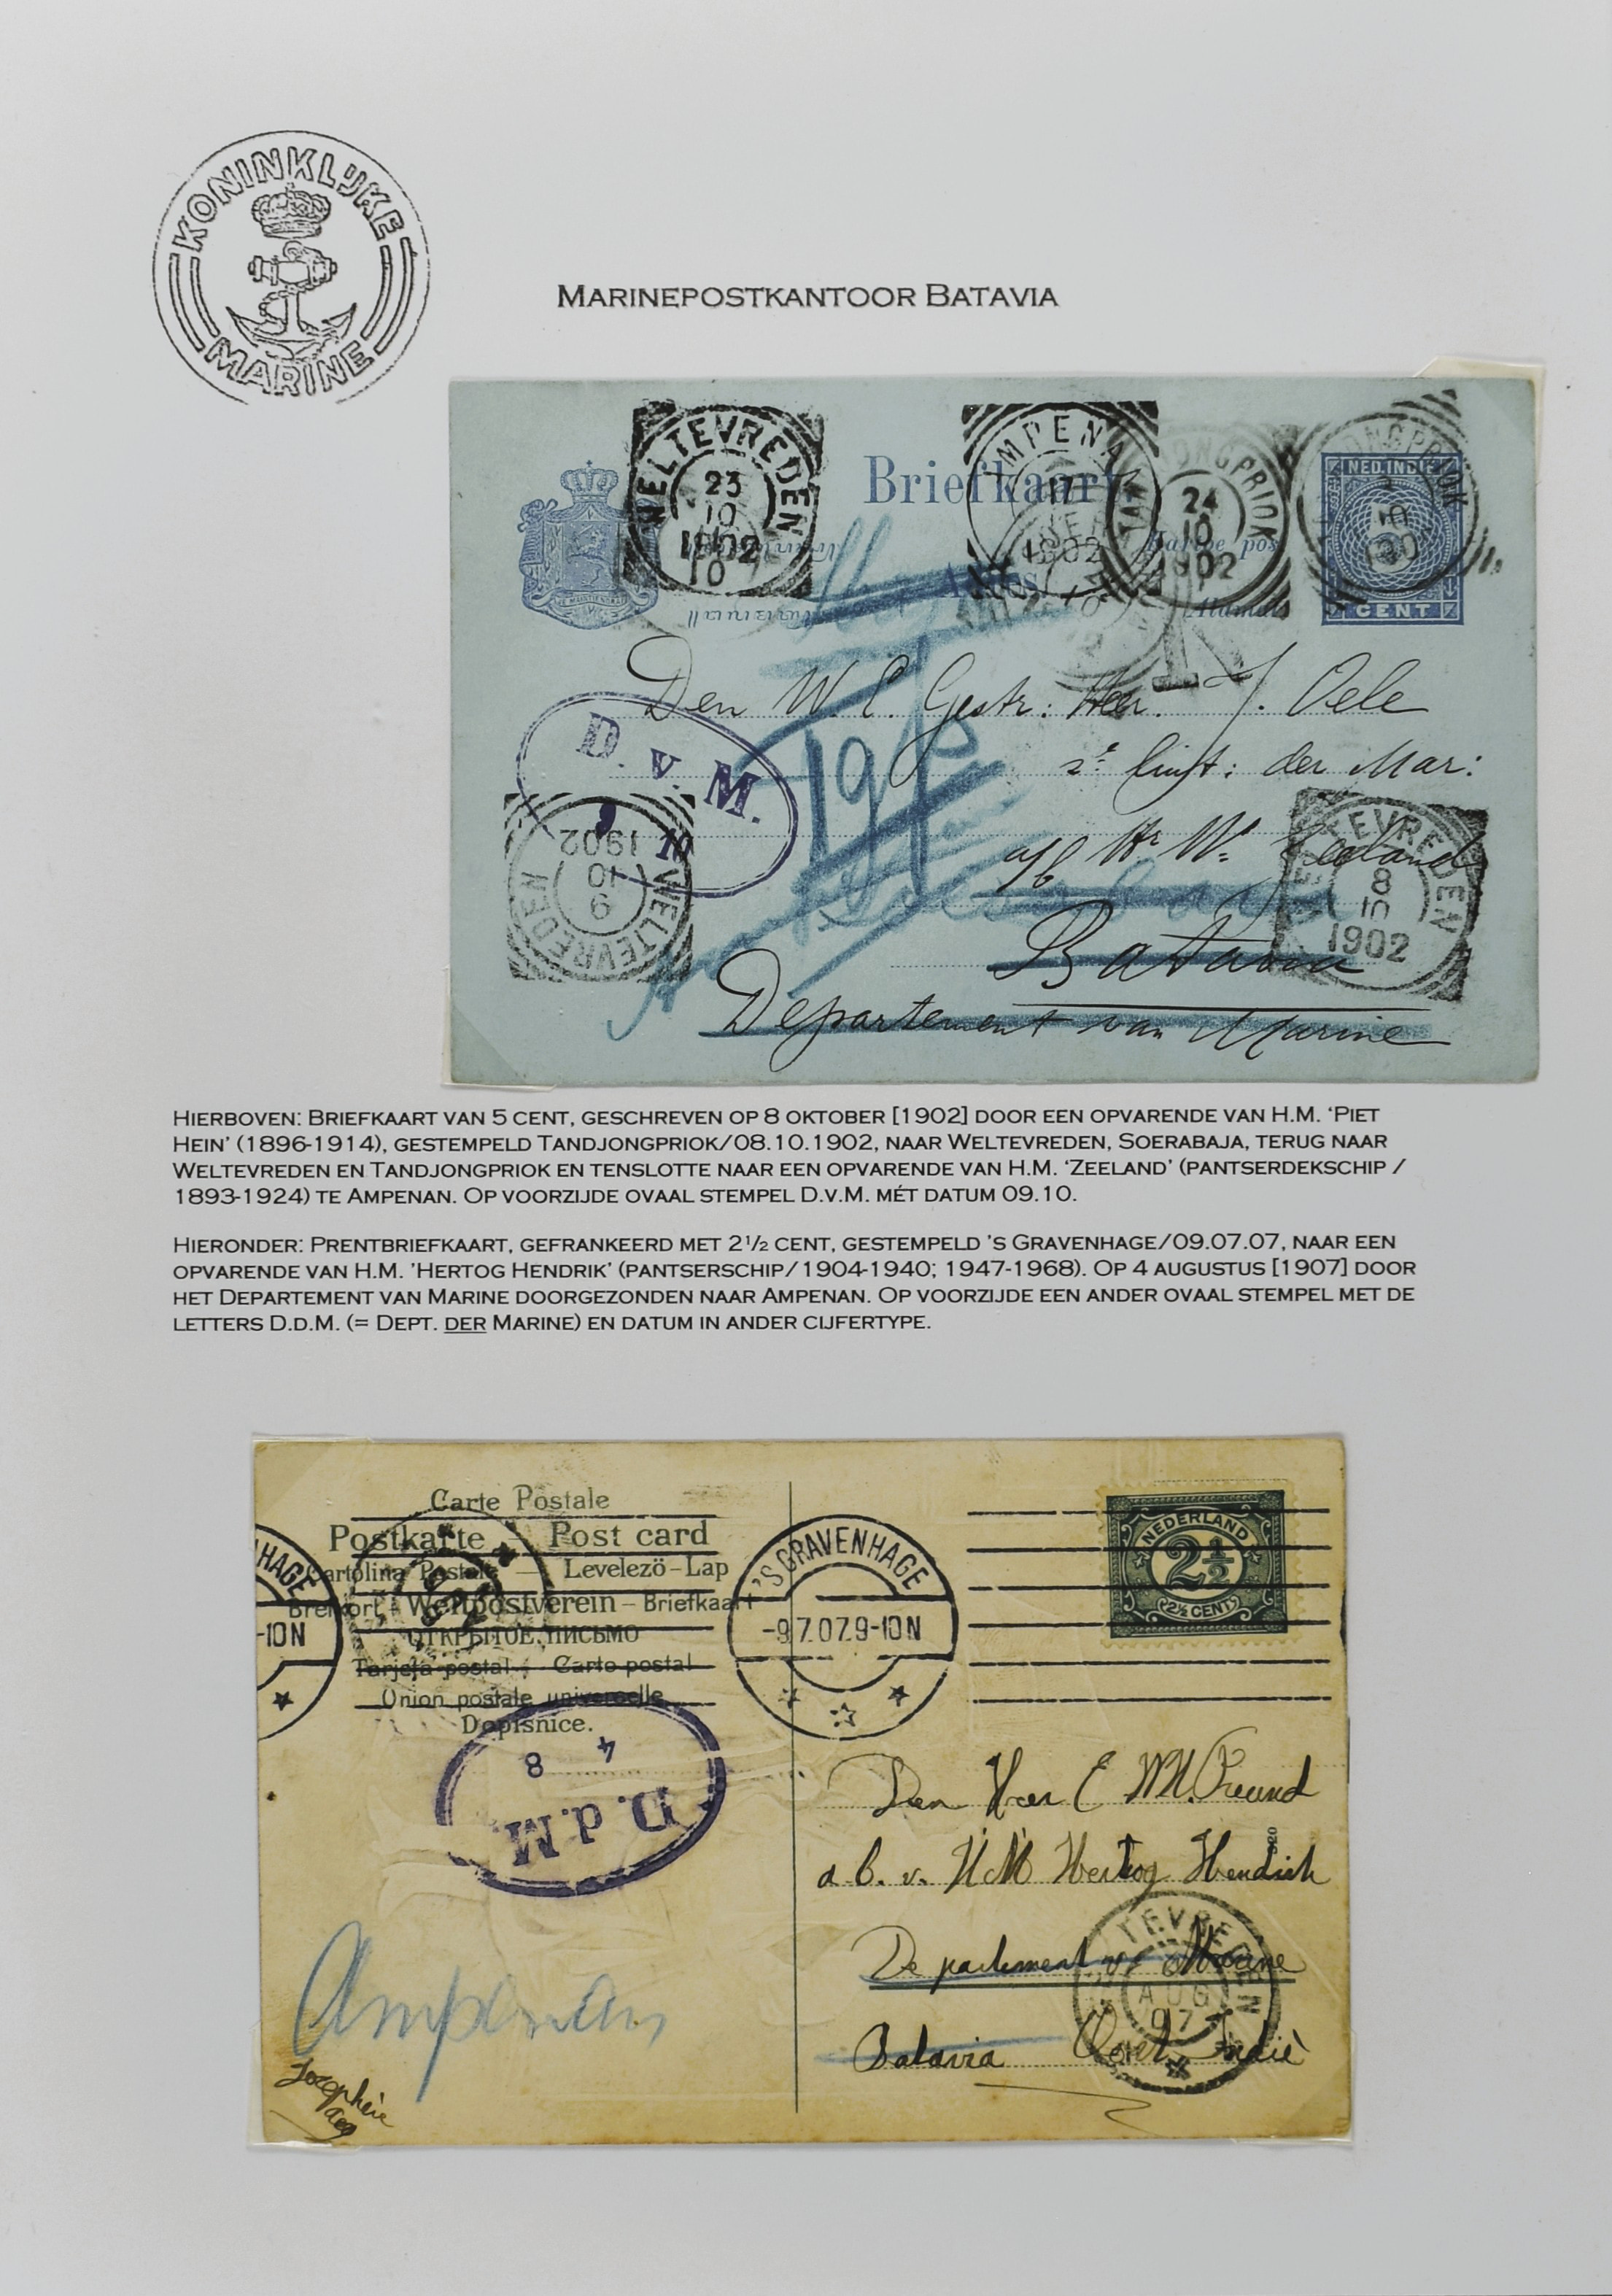 KONINKLIJKE
MARINE
MARINEPOSTKANTOOR BATAVIA
WELTEVREDEN
23
10
1902
AMPENAN
1902
TANDJONGPRIOK
24
10
1902
TANDJONGPRIOK
10
Briefkaart
NED. INDIE
CENT
Den W. E. Gestr: Heer. J. Oele
der Mar:
a/b Hr Ms Zeeland
Batavia
Departement van Marine
D. v. M.
9 10
WELTEVREDEN
9
10
1902
WELTEVREDEN
8
10
1902
HIERBOVEN: BRIEFKAART VAN 5 CENT, GESCHREVEN OP 8 OKTOBER [1902] DOOR EEN OPVARENDE VAN H.M. 'PIET
HEIN' (1896-1914), GESTEMPELD TANDJONGPRIOK/08.10.1902, NAAR WELTEVREDEN, SOERABAJA, TERUG NAAR
WELTEVREDEN EN TANDJONGPRIOK EN TENSLOTTE NAAR EEN OPVARENDE VAN H.M. 'ZEELAND' (PANTSERDEKSCHIP /
1893-1924) TE AMPENAN. OP VOORZIJDE OVAAL STEMPEL D.V.M. MÉT DATUM 09.10.
HIERONDER: PRENTBRIEFKAART, GEFRANKEERD MET 2½ CENT, GESTEMPELD 'S GRAVENHAGE/09.07.07, NAAR EEN
OPVARENDE VAN H.M. 'HERTOG HENDRIK' (PANTSERSCHIP/1904-1940; 1947-1968). OP 4 AUGUSTUS [1907] DOOR
HET DEPARTEMENT VAN MARINE DOORGEZONDEN NAAR AMPENAN. OP VOORZIJDE EEN ANDER OVAAL STEMPEL MET DE
LETTERS D.D.M. (= DEPT. DER MARINE) EN DATUM IN ANDER CIJFERTYPE.
Carte Postale
Postkarte – Post card
Cartolina Postale — Levelezö-Lap
Brefkort – Weltpostverein – Briefkaart
ОТКРЫТОЕ ПИСЬМО
Tarjeta postal – Carte postal
Union postale universelle
Dopisnice.
HAGE
-10N
'S GRAVENHAGE
-9.7.07.9-10N
NEDERLAND
2½
2½ CENT
D.d.M.
4 8
Den Heer E W.H. Freund
a. b. v. H M Hertog Hendrik
Departement v. Marine
Batavia Oost Indië
WELTEVREDEN
AUG
07
Ampenan